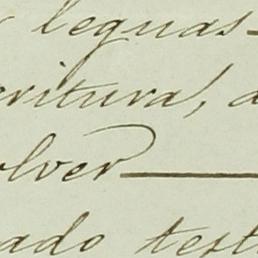 leguas
critura, a
olver
ado test